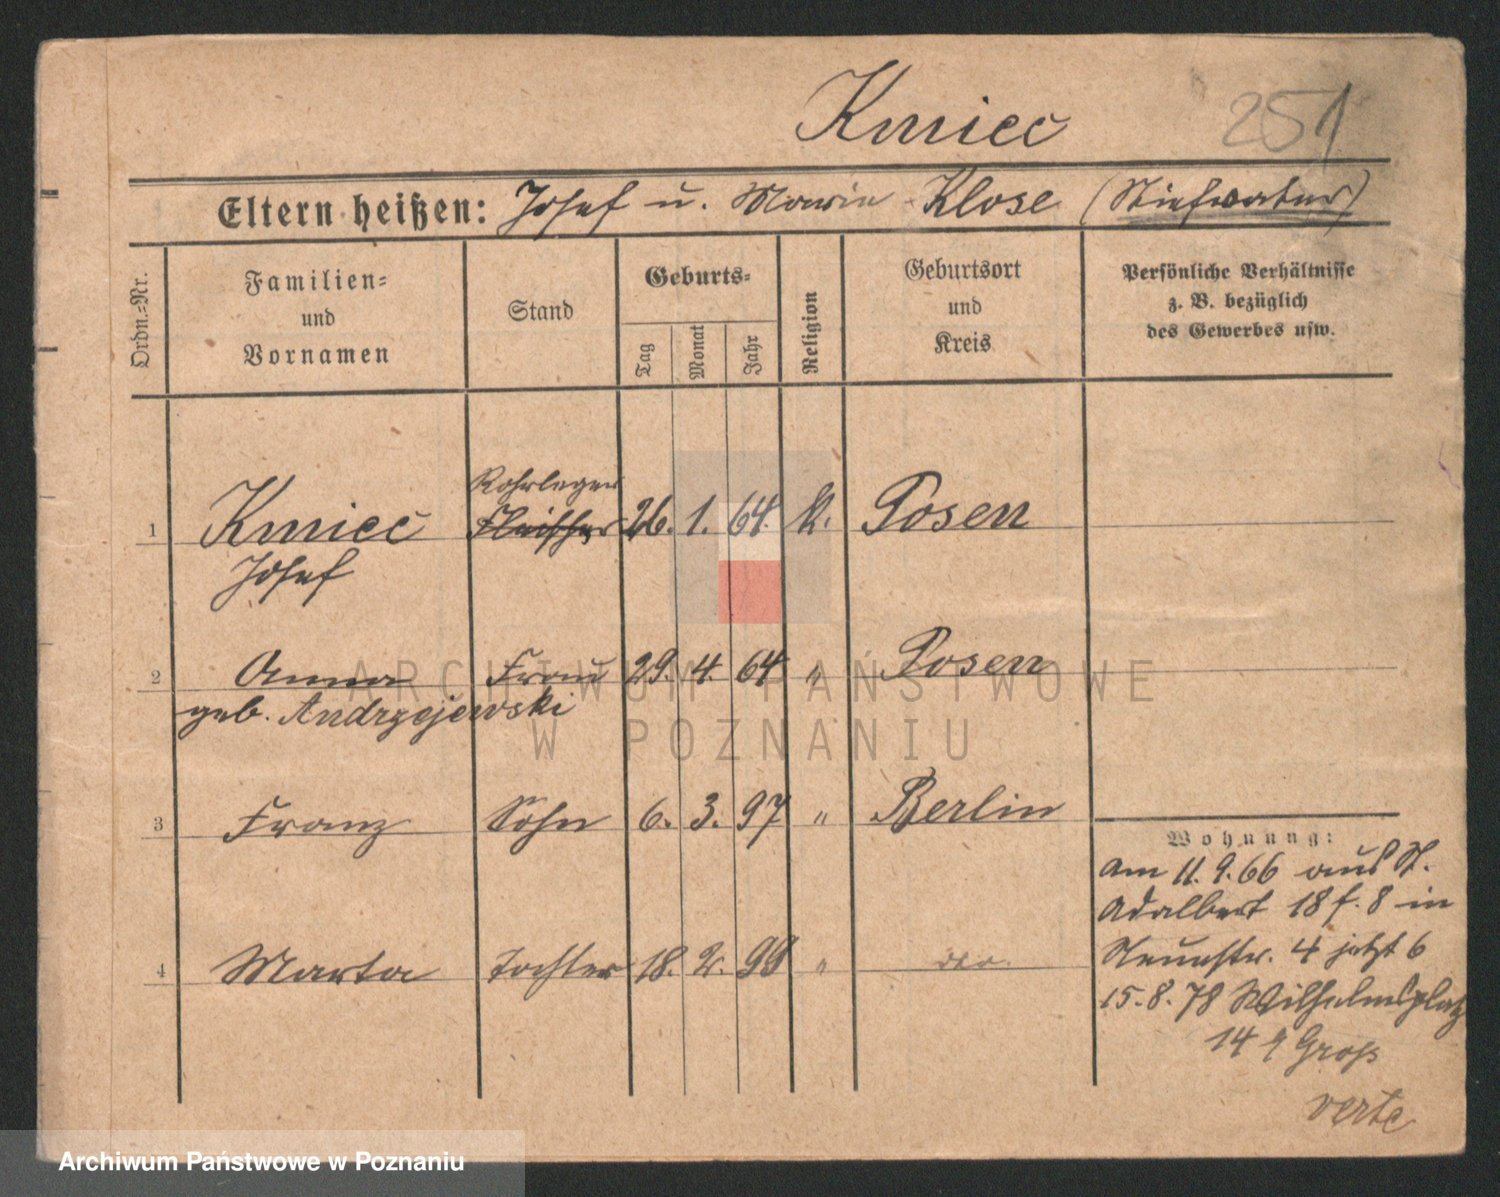 Kmieć
251
Eltern heißen: Josef u. Maria Klose (Stiefvater)
Ordn.-Nr.
Familien-
und
Vornamen
Stand
Geburts-
Tag
Monat
Jahr
Religion
Geburtsort
und
Kreis
Persönliche Verhältnisse
z. B. bezüglich
des Gewerbes usw.
Rohrleger
1 Kmieć Fleischer 26. 1. 64. K. Posen
Josef
2 Anna Frau 29. 4. 64 " Posen
geb. Andrzejewski
3 Franz Sohn 6. 3. 97 " Berlin
4 Marta Tochter 18. 2. 99 " dto.
Wohnung:
am 11. 9. 66 aus St.
Adalbert 18 f. 8 in
Neuestr. 4 jetzt 6
15. 8. 78 Wilhelmsplatz
14 Groß
verte
ARCHIWUM PAŃSTWOWE
W POZNANIU
Archiwum Państwowe w Poznaniu